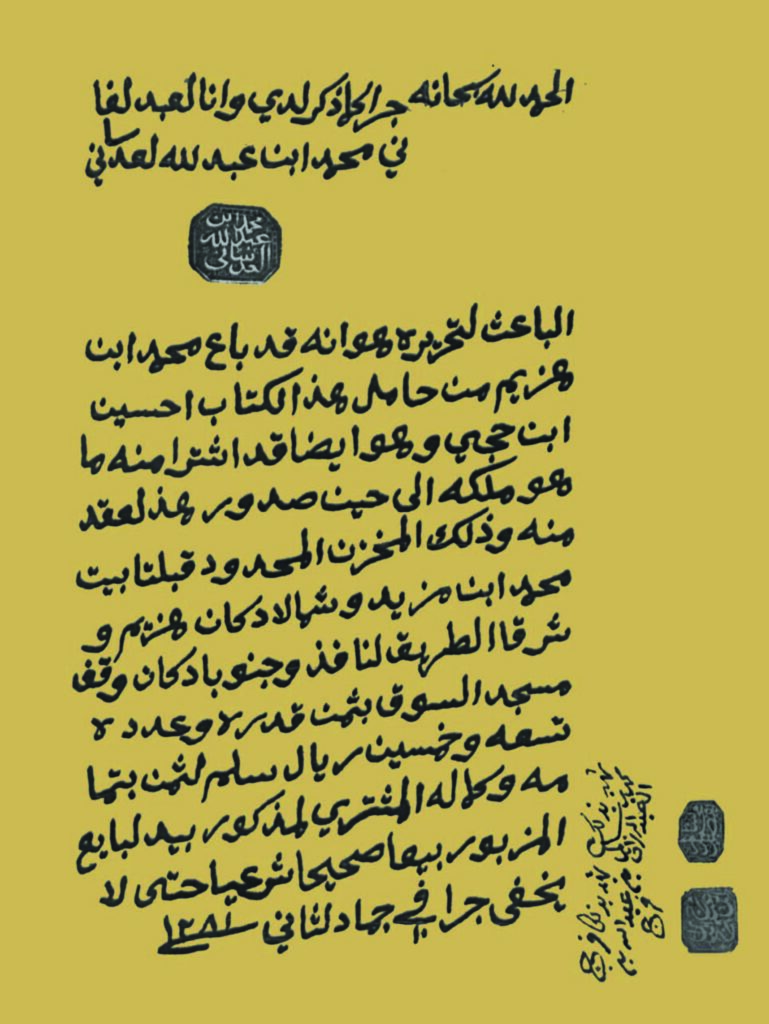 الحمد لله سبحانه جرا كما ذكر لدي وانا لعبد لفا
ني محمد ابن عبد لله لعدساني
محمد ابن
عبد الله
العدساني
الباعث لتحريره هو انه قد باع محمد ابن
هزيم من حامل هذ الكتاب احسين
ابن حجي وهو ايضا قد اشترا منه ما
هو ملكه الى حين صدور هذ لعقد
منه وذلك المخزن المحدود قبلتا بيت
محمد ابن مزيد وشمالا دكان هزيم و
شرقا الطريق لنافذ وجنوبا دكان وقف
مسجد السوق بثمن قدره وعدده
تسعه وخمسين ريال سلم لثمن بتما
مه وكماله المشتري لمذكور بيد لبايع
المزبور بيعا صحيحا شرعيا حتى لا
يخفى جرا في جماد لثاني سنة ١٢٨١
شهد بذلك